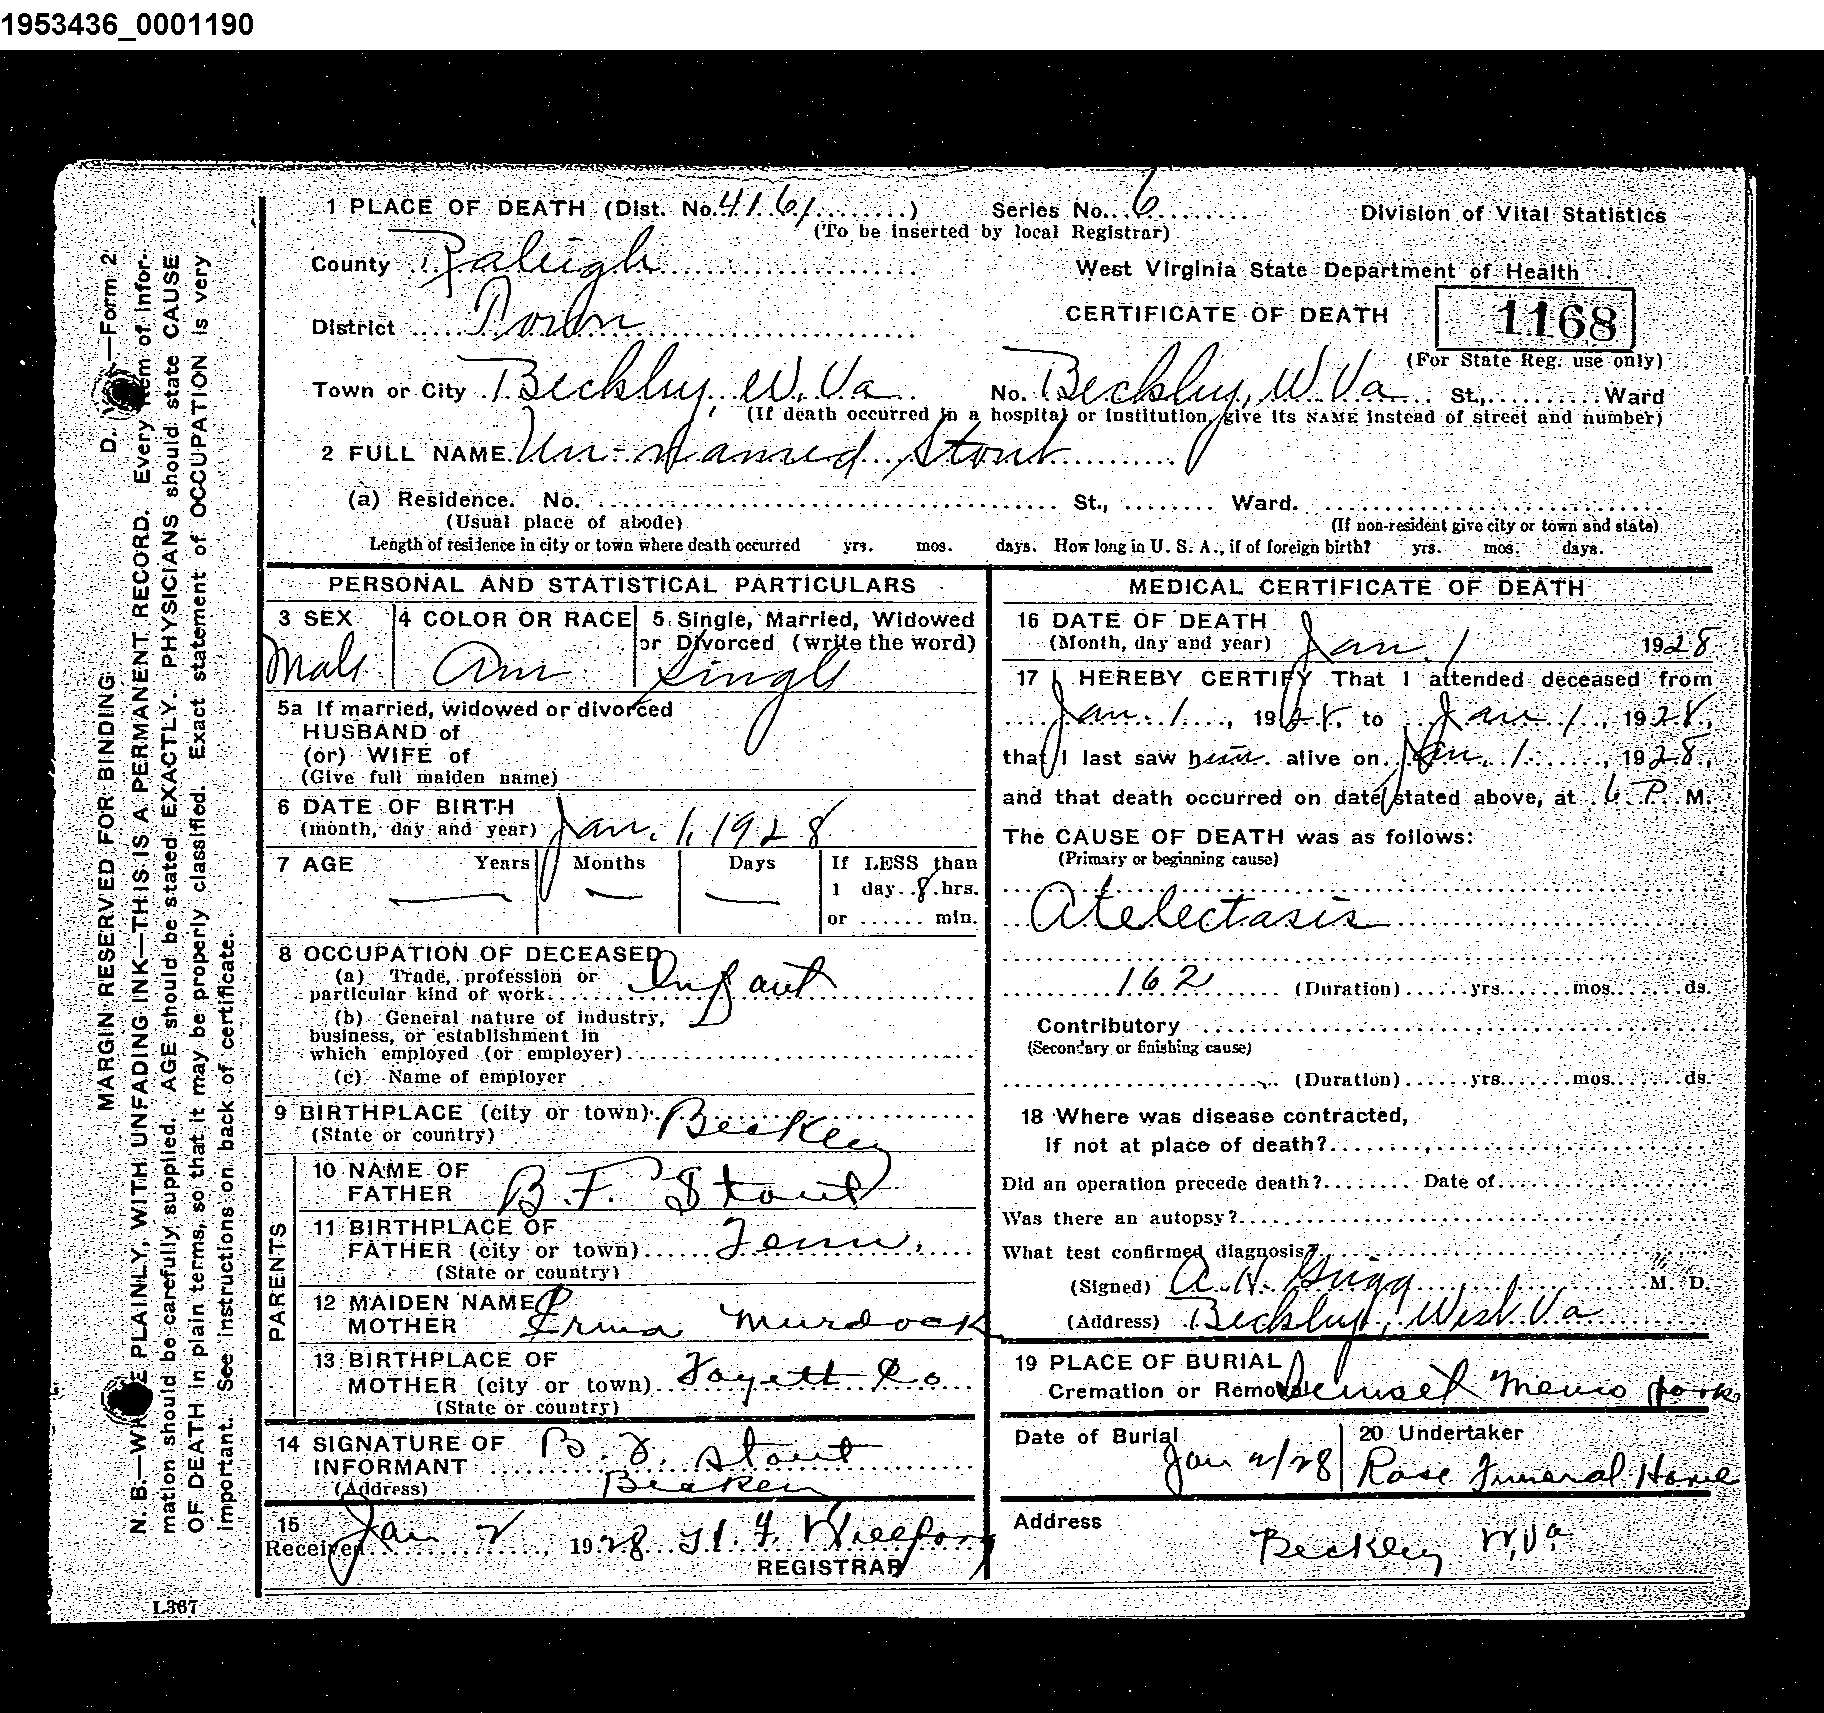 1953436_0001190
1 PLACE OF DEATH (Dist. No. 4161 ) Series No. 6 Division of Vital Statistics
(To be inserted by local Registrar)
County Raleigh West Virginia State Department of Health
District Town CERTIFICATE OF DEATH 1168
(For State Reg. use only)
Town or City Beckley, W. Va No. Beckley, W. Va St., Ward
(If death occurred in a hospital or institution, give its NAME instead of street and number)
2 FULL NAME Un-named Stout
(a) Residence. No. St., Ward.
(Usual place of abode) (If non-resident give city or town and state)
Length of residence in city or town where death occurred yrs. mos. days. How long in U. S. A., if of foreign birth? yrs. mos. days.
PERSONAL AND STATISTICAL PARTICULARS
3 SEX 4 COLOR OR RACE 5 Single, Married, Widowed
or Divorced (write the word)
Male Am Single
5a If married, widowed or divorced
HUSBAND of
(or) WIFE of
(Give full maiden name)
6 DATE OF BIRTH
(month, day and year) Jan. 1, 1928
7 AGE Years Months Days If LESS than
1 day 8 hrs.
or ...... min.
8 OCCUPATION OF DECEASED
(a) Trade, profession or
particular kind of work Infant
(b) General nature of industry,
business, or establishment in
which employed (or employer)
(c) Name of employer
9 BIRTHPLACE (city or town) Beckley
(State or country)
PARENTS
10 NAME OF
FATHER B. F. Stout
11 BIRTHPLACE OF
FATHER (city or town) Tenn.
(State or country)
12 MAIDEN NAME
MOTHER Murdock
13 BIRTHPLACE OF
MOTHER (city or town) Fayett Co
(State or country)
14 SIGNATURE OF
INFORMANT B. F. Stout
(Address) Beckley
15
Received Jan 2, 1928
REGISTRAR
MEDICAL CERTIFICATE OF DEATH
16 DATE OF DEATH
(Month, day and year) Jan. 1 1928
17 I HEREBY CERTIFY That I attended deceased from
Jan. 1, 1928, to Jan. 1, 1928,
that I last saw him alive on Jan. 1, 1928,
and that death occurred on date stated above, at 6 P. M.
The CAUSE OF DEATH was as follows:
(Primary or beginning cause)
Atelectasis
162 (Duration) yrs. mos. ds.
Contributory
(Secondary or finishing cause)
(Duration) yrs. mos. ds.
18 Where was disease contracted,
if not at place of death?
Did an operation precede death? Date of
Was there an autopsy?
What test confirmed diagnosis?
(Signed) A. H. Grigg M. D.
(Address) Beckley, West Va
19 PLACE OF BURIAL
Cremation or Removal Sunset Memo Park
Date of Burial Jan 2/28 20 Undertaker
Rose Funeral Home
Address
Beckley W. Va
D. —Form 2
MARGIN RESERVED FOR BINDING
N. B.—WRITE PLAINLY, WITH UNFADING INK—THIS IS A PERMANENT RECORD. Every item of infor-
mation should be carefully supplied. AGE should be stated EXACTLY. PHYSICIANS should state CAUSE
OF DEATH in plain terms, so that it may be properly classified. Exact statement of OCCUPATION is very
important. See instructions on back of certificate.
L367